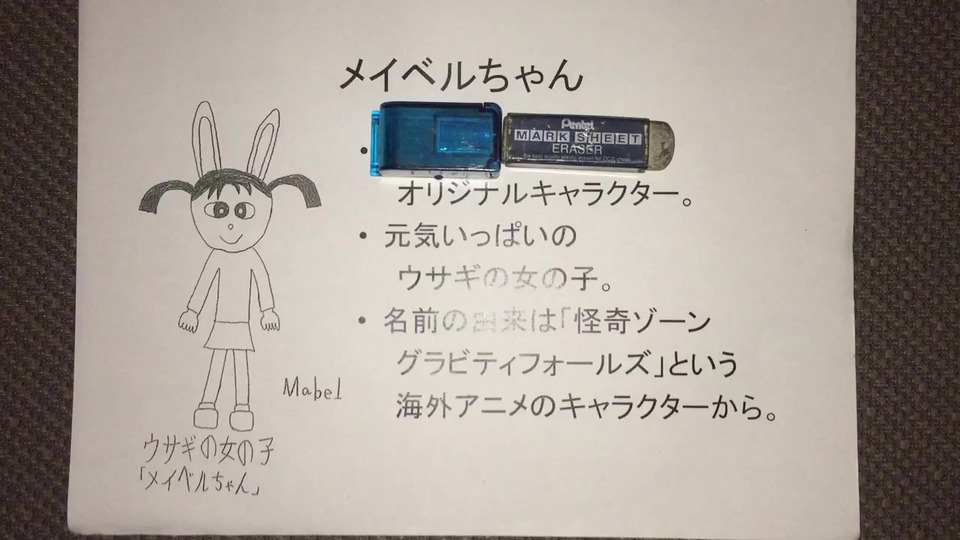 メイベルちゃん
Pentel
MARK SHEET
ERASER
オリジナルキャラクター。
• 元気いっぱいの
ウサギの女の子。
• 名前の由来は「怪奇ゾーン
グラビティフォールズ」という
海外アニメのキャラクターから。
Mabel
ウサギの女の子
「メイベルちゃん」